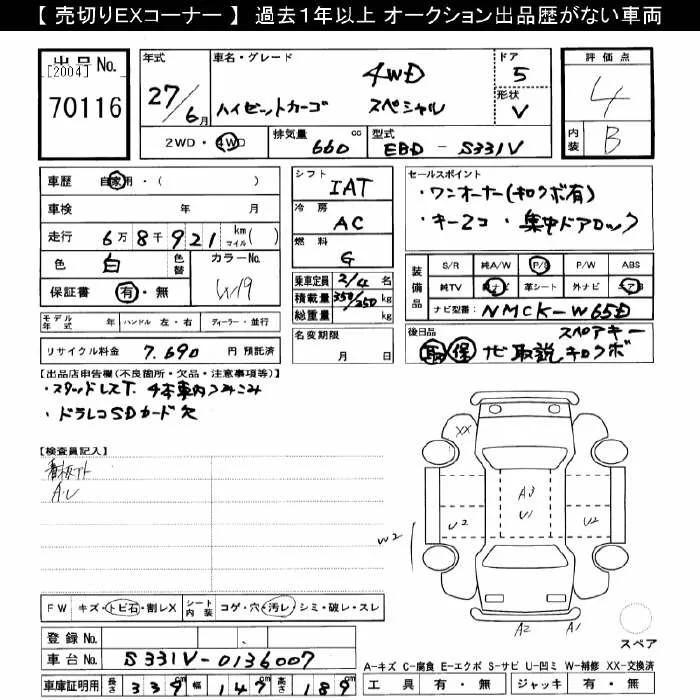 【 売切りEXコーナー 】 過去1年以上 オークション出品歴がない車両
出品No.
[2004]
70116
年式
27/6月
車名・グレード
4WD
ハイゼットカーゴ スペシャル
ドア
5
形状
V
2WD・4WD 排気量 660 cc 型式 EBD - S331V
評価点
4
内装
B
車歴 自家用・( )
車検 年 月
走行 6万8千921 km マイル( )
色 白 色替 カラーNo. W19
保証書 有・無
モデル年式 年 ハンドル 左・右 ディーラー・並行
リサイクル料金 7,690 円 預託済
シフト
IAT
冷房
AC
燃料
G
乗車定員 2/4 名
積載量 350/250 kg
総重量 kg
名変期限
月 日
セールスポイント
・ワンオーナー(和クボ有)
・キー2コ ・集中ドアロック
装備品
S/R 純A/W P/S P/W ABS
純TV 純ナビ 革シート 外ナビ エアB
ナビ型番 NMCK-W65D
後日品 スペアキー
取 保 ナビ取説 キロクボ
【出品店申告欄(不良箇所・欠品・注意事項等)】
・スタッドレスT. 4本車内つみこみ
・ドラレコSDカード欠
【検査員記入】
A・U
XX
A3
U1
U2
U2
W2
A2
A1
スペア
FW キズ・トビ石・割レX シート内装 コゲ・穴・汚レ・シミ・破レ・スレ
登録No.
車台No. S331V-0136007
車庫証明用 長さ 339 幅 147 高さ 189
A-キズ C-腐食 E-エクボ S-サビ U-凹ミ W-補修 XX-交換済
工具 有・無 ジャッキ 有・無